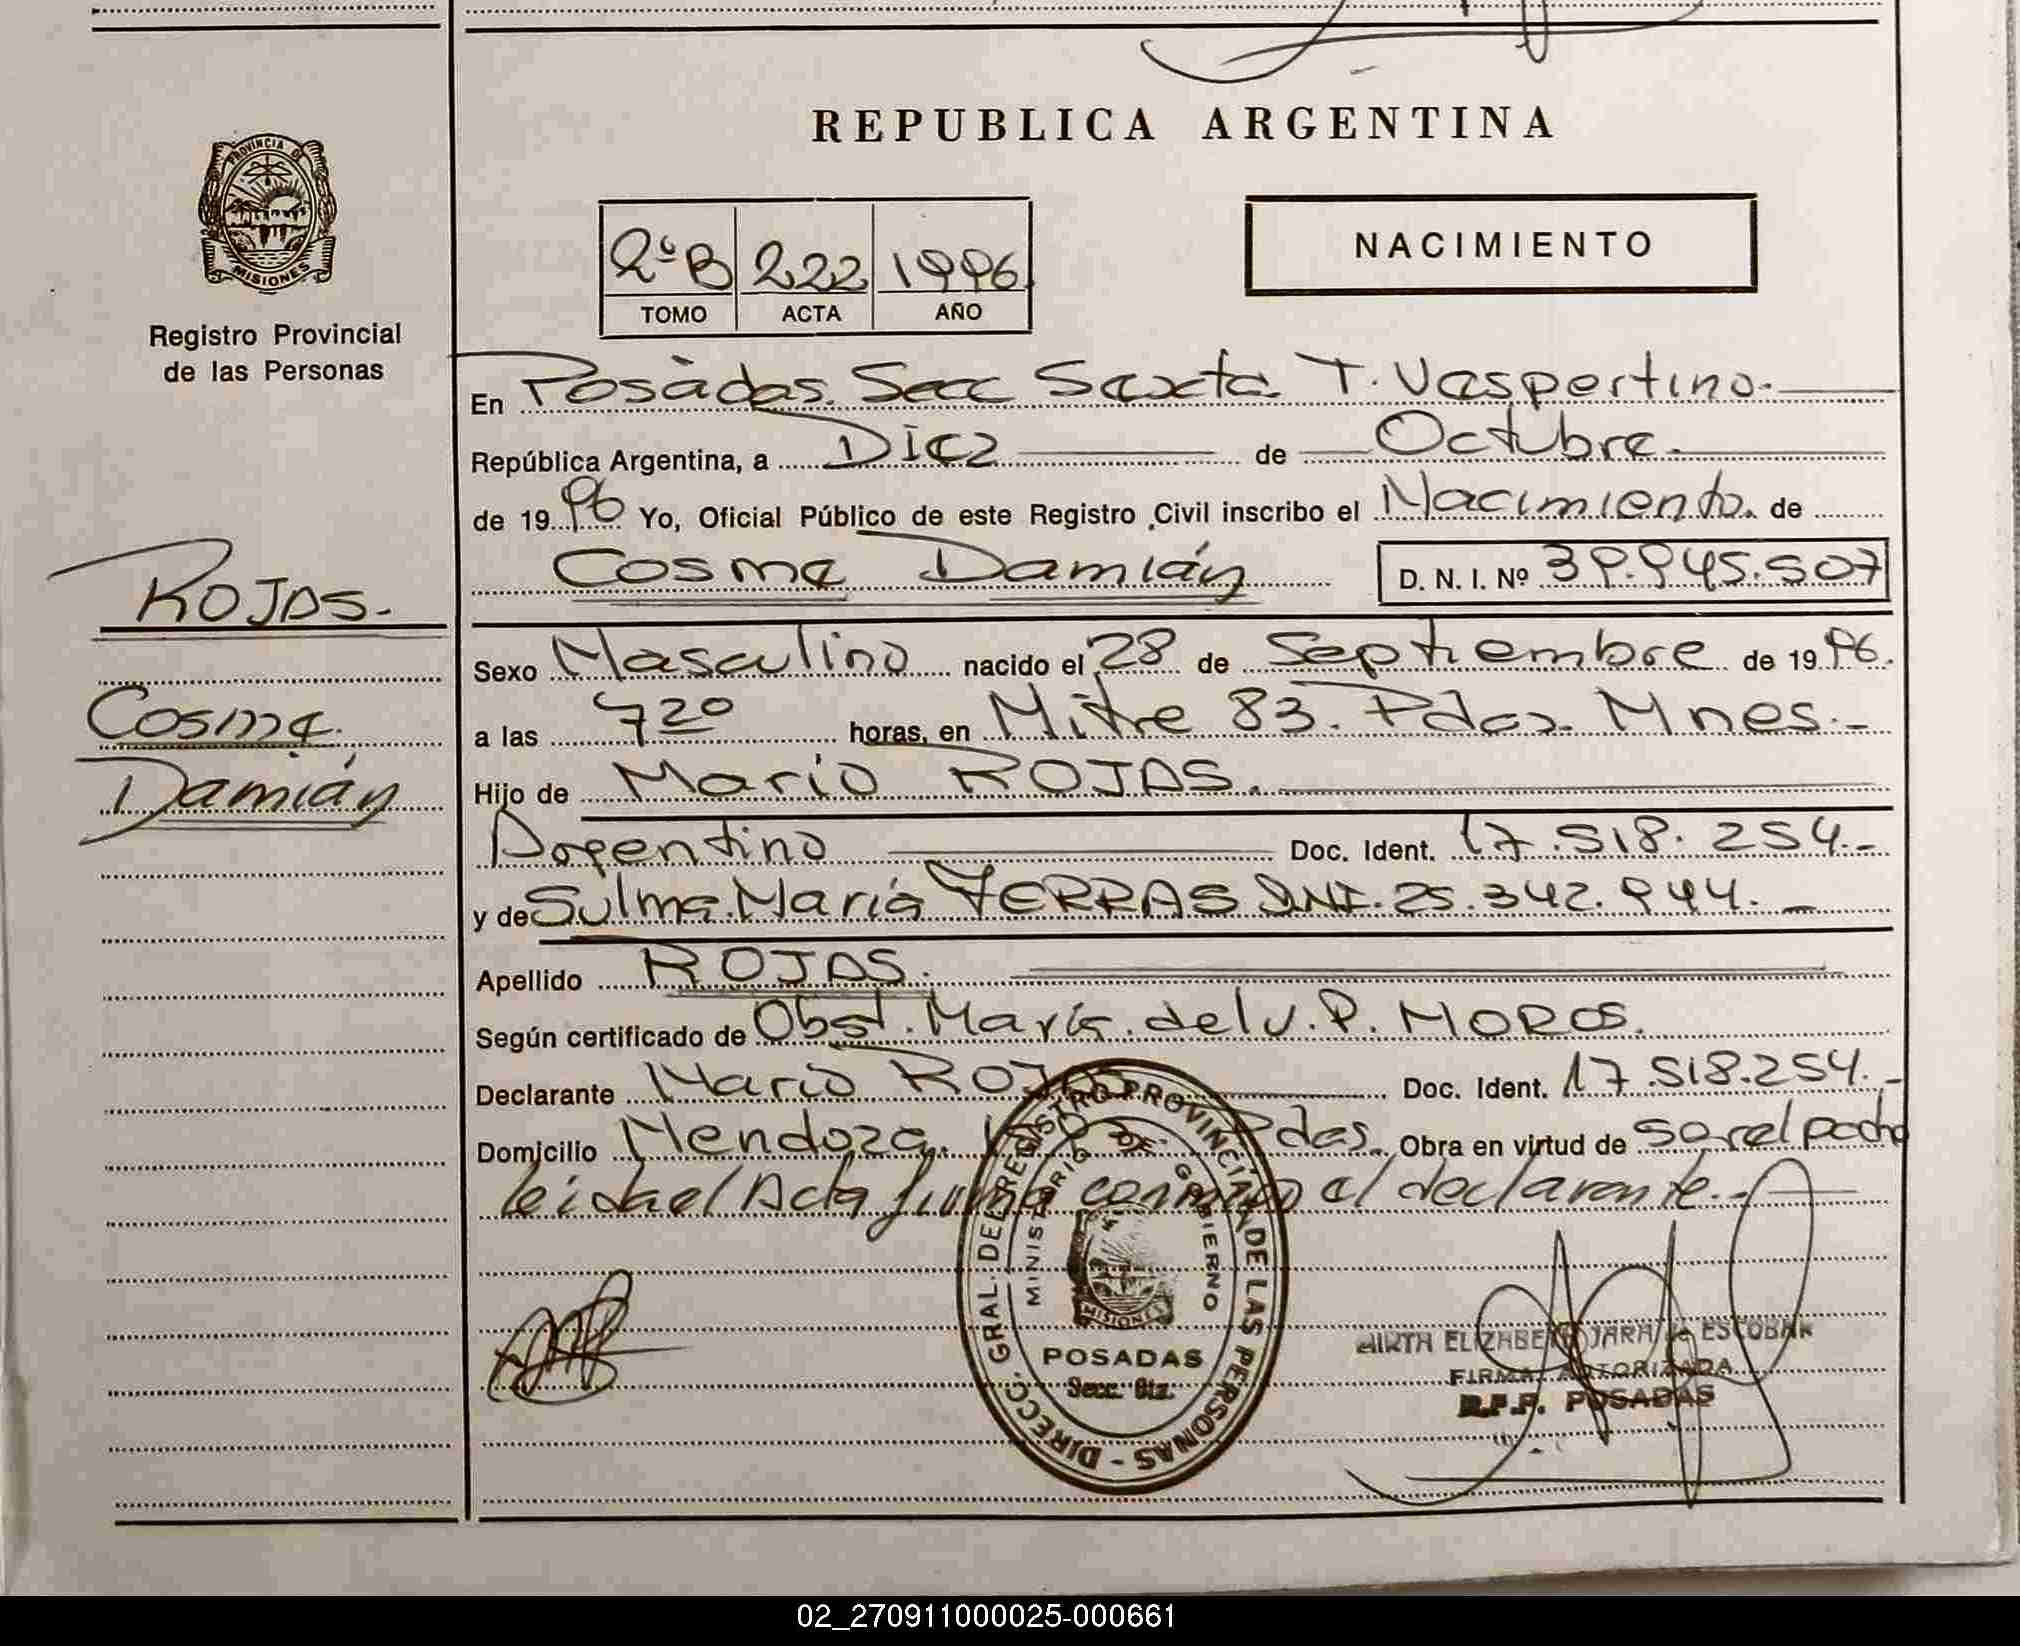 REPUBLICA ARGENTINA
PROVINCIA DE
MISIONES
Registro Provincial
de las Personas
2ºB 222 1996
TOMO ACTA AÑO
NACIMIENTO
En Posadas. Secc Sexta T. Vespertino.-
República Argentina, a Diez de Octubre.
de 1996 Yo, Oficial Público de este Registro Civil inscribo el Nacimiento. de
Cosme Damián D. N. I. Nº 39.945.507
ROJAS.-
Cosme
Damián
Sexo Masculino nacido el 28 de Septiembre de 1996.
a las 7 20 horas, en Mitre 83. Pdas. Mnes.-
Hijo de Mario ROJAS.
Argentino Doc. Ident. 17.518.254.-
y de Sulma María DNI. 25.342.944.-
Apellido ROJAS.
Según certificado de Obst. María. del V. P. MOROS.
Declarante Mario ROJAS Doc. Ident. 17.518.254.-
Domicilio Mendoza. Pdas. Obra en virtud de
leida el Acta firma conmigo el declarante.-
DIRECC. GRAL. DEL REGISTRO PROVINCIAL DE LAS PERSONAS -
MINISTERIO DE GOBIERNO
MISIONES
POSADAS
Secc. 6ta.
MIRTH ELIZABE JARA de ESCOBAR
FIRMA AUTORIZADA
R.P.P. POSADAS
02_270911000025-000661